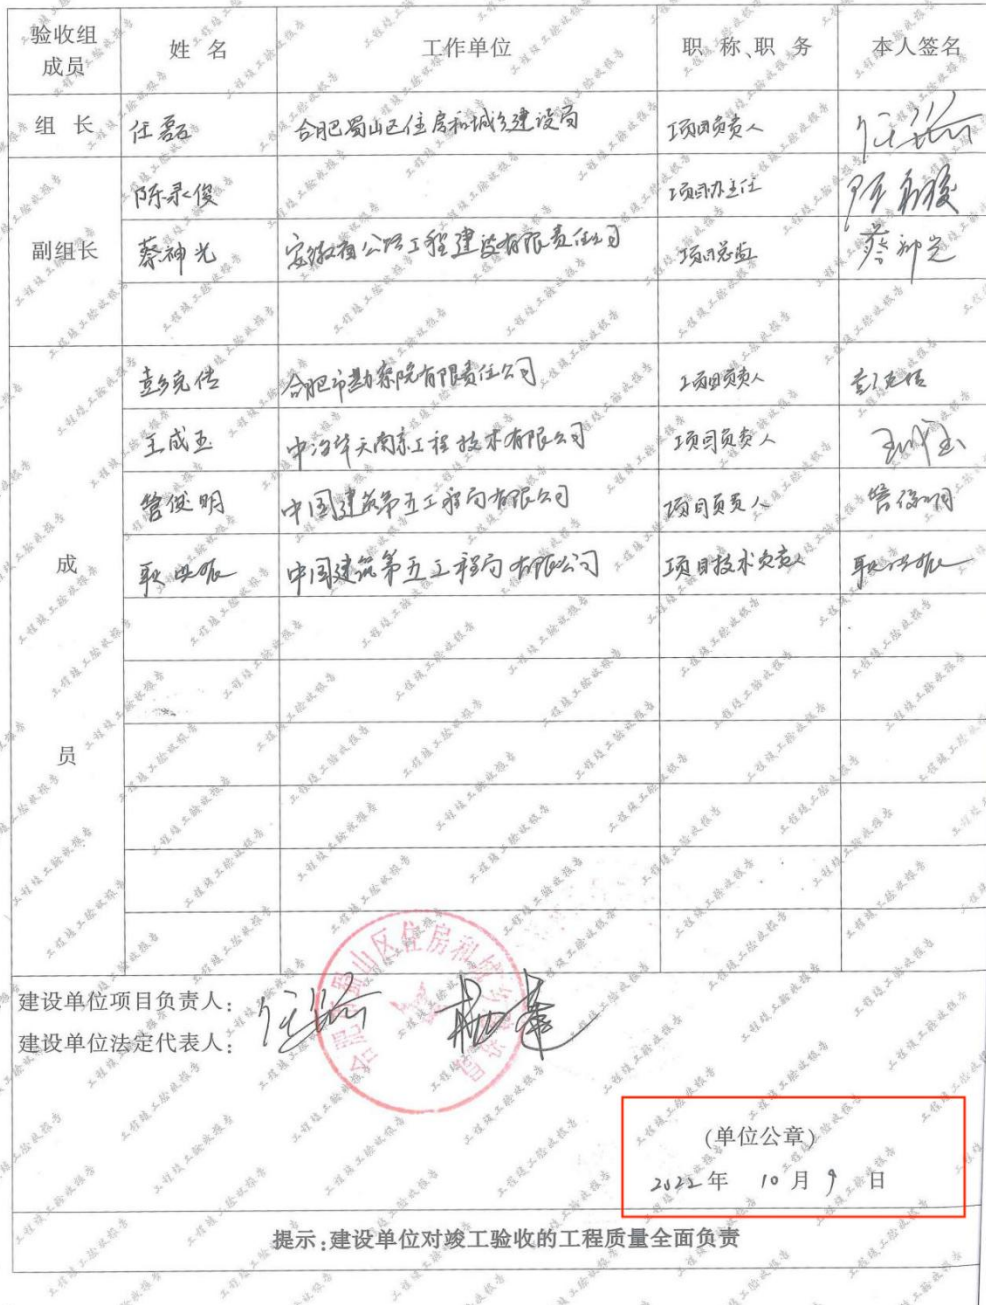 验收组成员 姓 名 工作单位 职 称、职 务 本人签名
组 长 任磊 合肥蜀山区住房和城乡建设局 项目负责人 任磊
副组长
陈录俊 项目办主任 陈录俊
蔡神光 安徽省公路工程建设有限责任公司 项目总监 蔡神光
成员
彭克传 合肥市勘察院有限责任公司 项目负责人 彭克传
王成玉 中冶华天南京工程技术有限公司 项目负责人 王成玉
管俊明 中国建筑第五工程局有限公司 项目负责人 管俊明
耿洪振 中国建筑第五工程局有限公司 项目技术负责人 耿洪振
建设单位项目负责人: 任磊
建设单位法定代表人:
合肥蜀山区住房和城乡建设局
(单位公章)
2022年 10月 9 日
提示:建设单位对竣工验收的工程质量全面负责
工程竣工验收报告